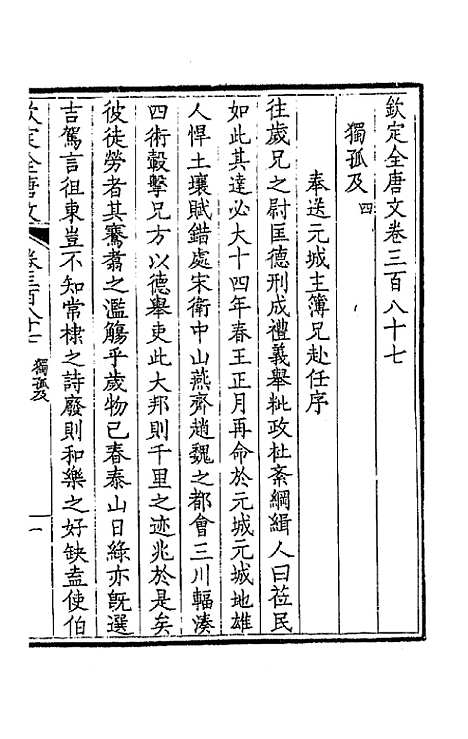 欽定全唐文卷三百八十七
獨孤及四
奉送元城主簿兄赴任序
往歲兄之尉匡德刑成禮義舉粃政杜紊綱緝人曰莅民
如此其達必大十四年春王正月再命於元城元城地雄
人悍土壤賦錯處宋衛中山燕齊趙魏之都會三川輻湊
四術轂擊兄方以德舉吏此大邦則千里之迹兆於是矣
彼徒勞者其騫翥之濫觴乎歲物已春泰山日綠亦旣選
吉駕言徂東豈不知常棣之詩廢則和樂之好缺盍使伯
欽定全唐文
卷三百八十七
獨孤及
一